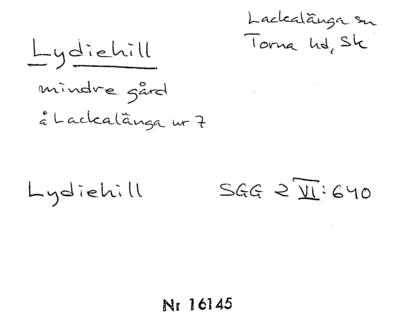 Lackalänga sn
Torna hd, Sk
Lydiehill
mindre gård
å Lackalänga nr 7
Lydiehill SGG 2 VI:640
Nr 16145